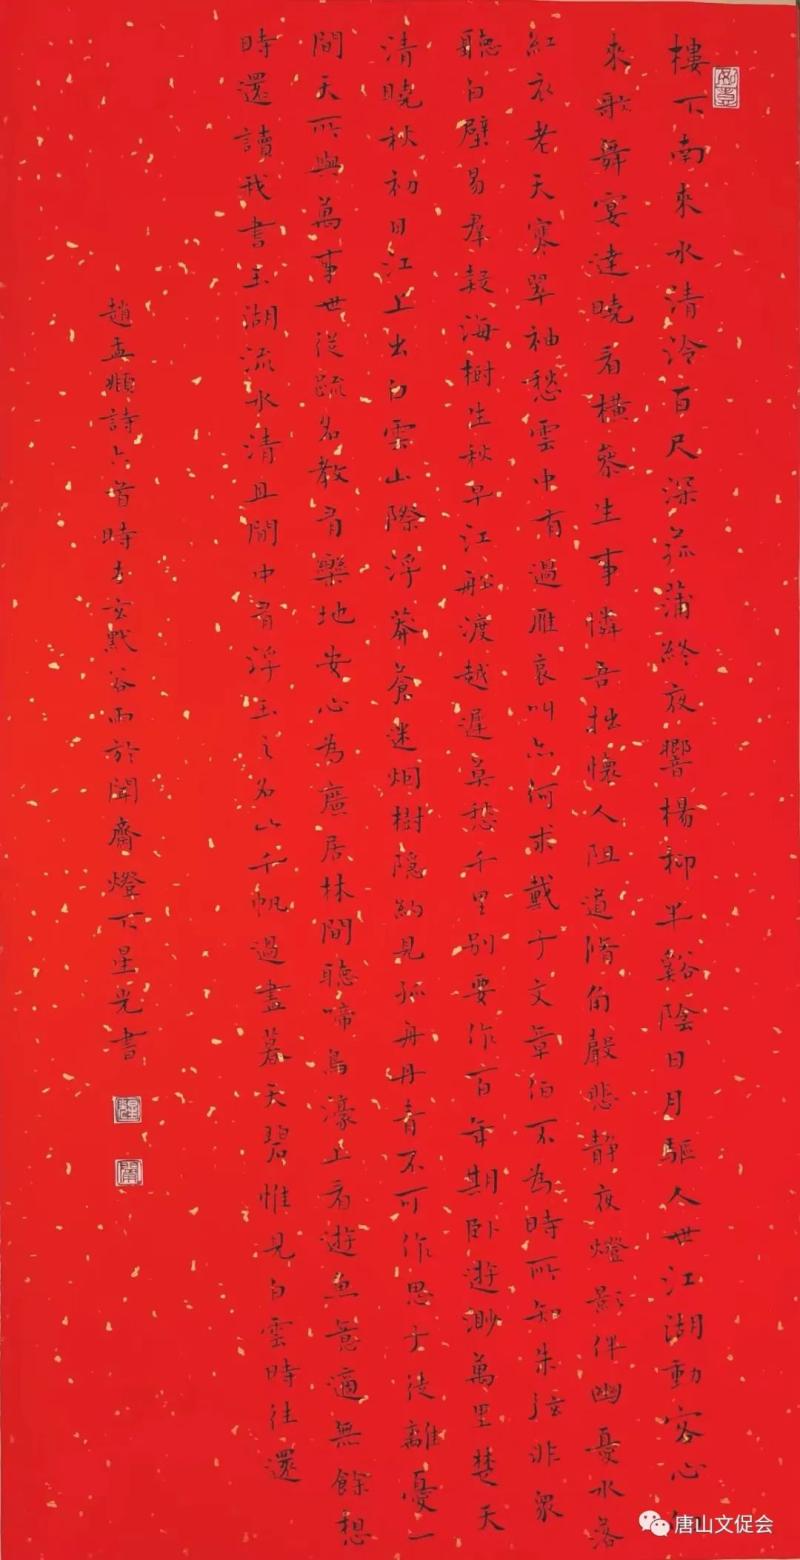 樓下南來水清泠百尺深菰蒲終夜響楊柳半谿陰日月驅人世江湖動客心何
來歌舞宴達曉看橫參生事憐吾拙懷人阻道脩角嚴悲靜夜燈影伴幽憂水落
紅衣老天寒翠袖愁雲中有過雁哀叫亦何求戴子文章伯不為時所知朱弦非眾
聽白璧易群疑海樹生秋早江船渡越遲莫愁千里別要作百年期臥遊渺萬里楚天
清曉秋初日江上出白雲山際浮莽蒼迷烟樹隱約見孤舟丹青不可作思子徒離憂一
閒天所與萬事世從疏名教有樂地安心為廣居林間聽啼鳥濠上看遊魚意適無餘想
時還讀我書玉湖流水清且閒中有浮玉之名山千帆過盡暮天碧惟見白雲時往還
趙孟頫詩六首時 玄黓谷雨於 齋燈下星光書
唐山文促会